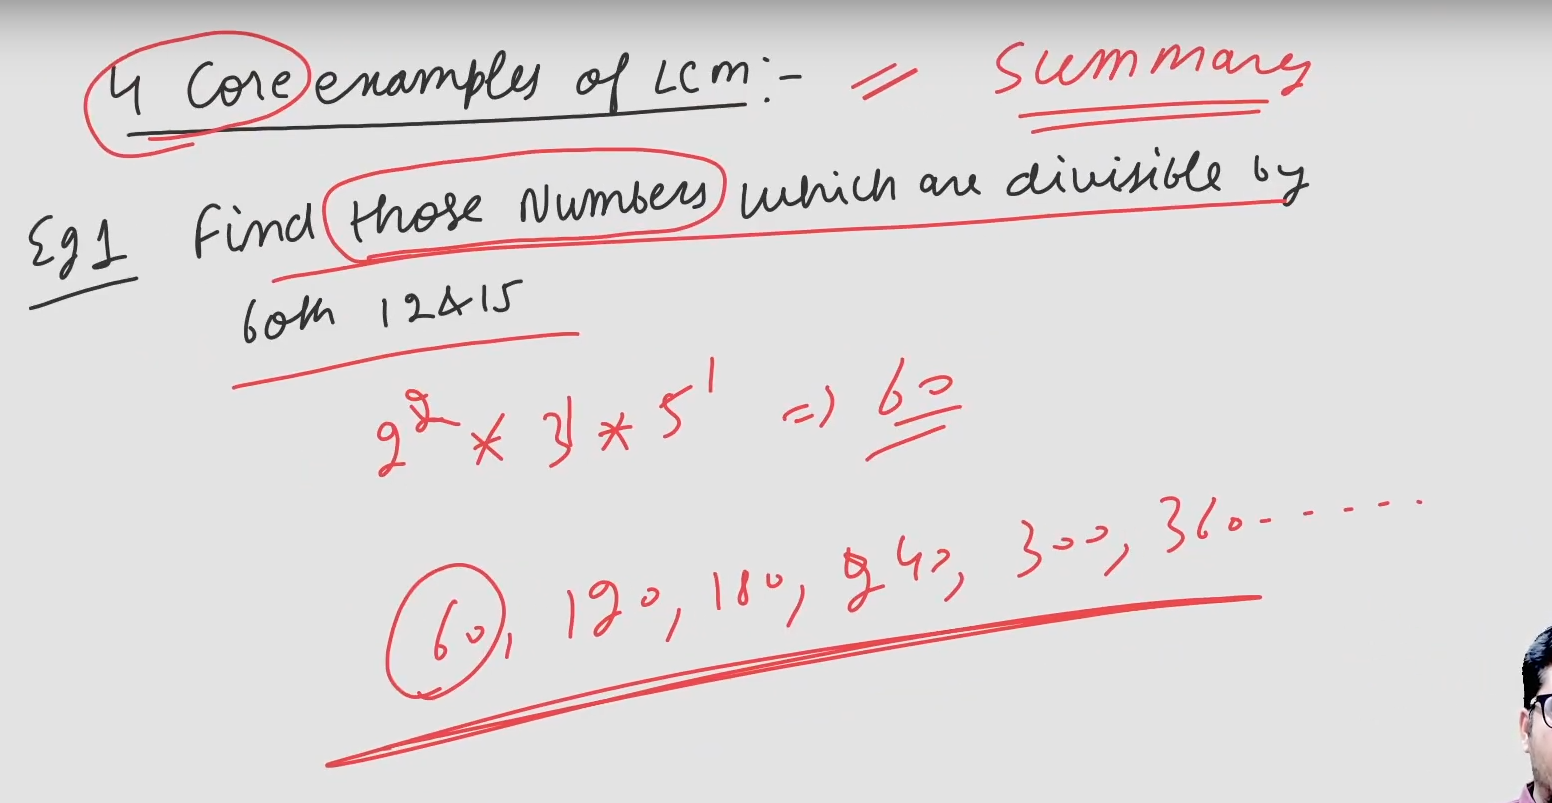 4 Core examples of LCM :- = Summary
Eg 1 Find those Numbers which are divisible by
both 12 & 15
2² * 3¹ * 5¹ => 60
60, 120, 180, 240, 300, 360 ......